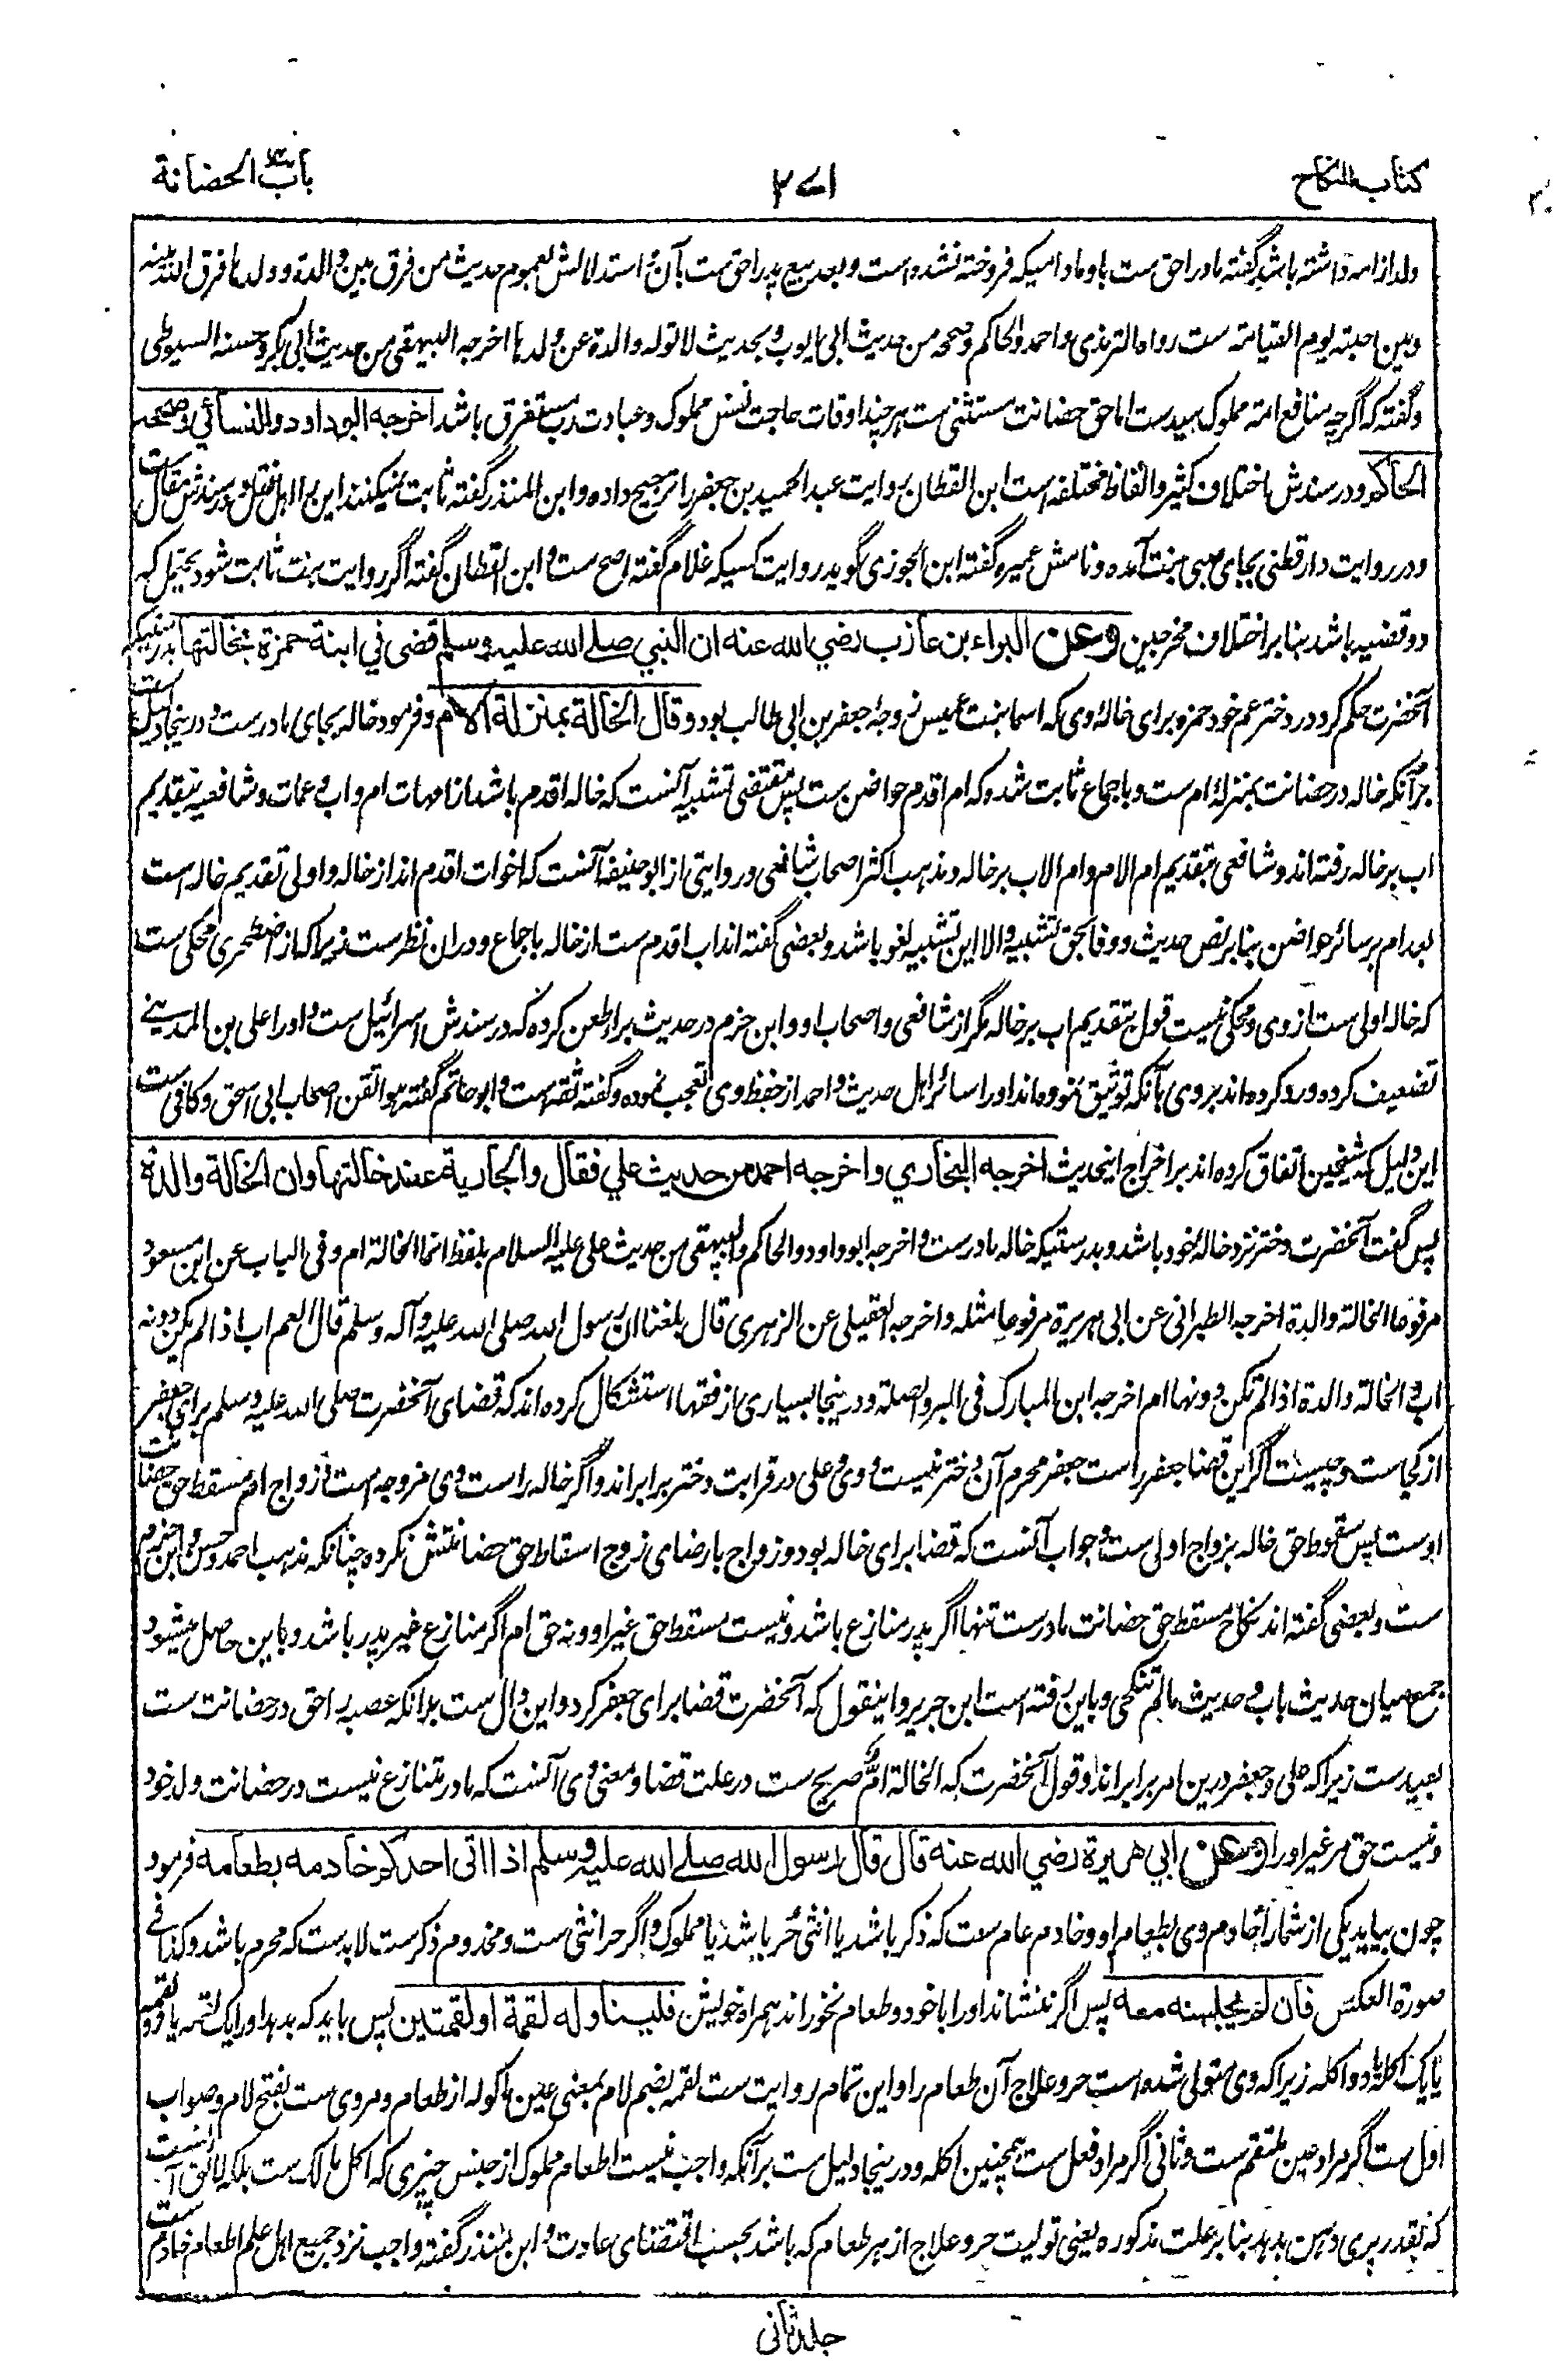 كتاب النكاح
٢٧١
باب الحضانة
ولد از امه داشته باشد گفته مادر احق ست باو مادامیکه فروخته نشده است و بعد بیع پدر احق ست بآن و استدلالش بعموم حدیث من فرق بین والدة و ولدها فرق الله بینه
و بین احبته یوم القیامة ست رواه الترمذی و احمد و الحاکم و صححه من حدیث ابی ایوب و بحدیث لا توله والدة عن ولدها اخرجه البیهقی من حدیث ابی بکر و حسنه السیوطی
و گفته که اگرچه منافع امه مملوک سید ست اما حق حضانت مستثنی ست هرچند اوقات حاجت نفس مملوک و عبادت رب مستغرق باشد اخرجه ابو داود والنسائي وصححه
الحاكم و در سندش اختلاف کثیر و الفاظ مختلفه است ابن القطان روایت عبد الحمید بن جعفر را ترجیح داده و ابن المنذر گفته ثابت نمیکنند این را اهل نقل و در سندش مقال ست
و در روایت دارقطنی بجای صبی بنت آمده و نامش عمیره گفته ابن الجوزی گوید روایت کسیکه غلام گفته اصح ست و ابن القطان گفته اگر روایت بنت ثابت شود یحتمل که
دو قضیه باشد بنا بر اختلاف مخرجین وعن البراء بن عازب رضي الله عنه ان النبي صلے الله عليه وسلم قضى في ابنة حمزة بخالتها بدرستیکه
آنحضرت حکم کرد در دختر عم خود حمزه برای خالهٔ وی که اسما بنت عمیس زوجهٔ جعفر بن ابی طالب بود وقال الخالة بمنزلة الام و فرمود خاله بجای مادر ست و درینجا دلیل ست
بر آنکه خاله در حضانت بمنزلهٔ ام ست و باجماع ثابت شده که ام اقدم حواضن ست پس مقتضی تشبیه آنست که خاله اقدم باشد از امهات ام و اب و عمات و شافعیه بتقدیم
اب بر خاله رفته اند و شافعی بتقدیم ام الام و ام الاب بر خاله و مذهب اکثر اصحاب شافعی و روایتی از ابو حنیفه آنست که اخوات اقدم اند از خاله و اولی تقدیم خاله است
بعد ام بر سائر حواضن بنا بر نص حدیث و وفا بحق تشبیه و الا این تشبیه لغو باشد و بعضی گفته اند اب اقدم ست از خاله باجماع و در آن نظر ست زیرا که از اصطخری محکی ست
که خاله اولی ست از وی و محکی نیست قول بتقدیم اب بر خاله مگر از شافعی و اصحاب او و ابن حزم در حدیث برا طعن کرده که در سندش اسرائیل ست و او را علی بن المدینی
تضعیف کرده و رد کرده اند بر وی بآنکه توثیق نموده اند او را سائر اهل حدیث و احمد از حفظ وی تعجب نموده و گفته ثقه است و ابو حاتم گفته هو اتقن اصحاب ابی اسحق و کافی ست
این دلیل که شیخین اتفاق کرده اند بر اخراج اینحدیث اخرجه البخاري واخرجه احمد من حديث علي فقال والجارية عند خالتها وان الخالة والدة
پس گفت آنحضرت دختر نزد خالهٔ خود باشد و بدرستیکه خاله مادر ست و اخرجه ابو داود و الحاکم و البیهقی من حدیث علی علیه السلام بلفظ انما الخالة ام و فی الباب عن ابن مسعود
مرفوعا الخالة والدة اخرجه الطبرانی عن ابی هریرة مرفوعا مثله و اخرجه العقیلی عن الزهری قال بلغنا ان رسول الله صلی الله علیه و آله و سلم قال العم اب اذا لم یکن دونه
اب و الخالة والدة اذا لم تکن دونها ام اخرجه ابن المبارک فی البر و الصلة و درینجا بسیاری از فقها استشکال کرده اند که قضای آنحضرت صلی الله علیه وسلم برای جعفر
از کجاست و چیست اگر این قضا جعفر راست جعفر محرم آن دختر نیست و وی و علی در قرابت دختر برابر اند و اگر خاله راست وی مزوجه است و زواج ام مسقط حق حضانت
اوست پس سقوط حق خاله بزواج اولی ست و جواب آنست که قضا برای خاله بود و زواج با رضای زوج اسقاط حق حضانتش نکرده چنانکه مذهب احمد و حسن و ابن حزم
ست و بعضی گفته اند نکاح مسقط حق حضانت مادر ست تنها اگر پدر منازع باشد و نیست مسقط حق غیر او و نه حق ام اگر منازع غیر پدر باشد و باین حاصل میشود
جمع میان حدیث باب و حدیث ما لم تنکحی و باین رفته است ابن جریر و اینقول که آنحضرت قضا برای جعفر کرد و این دال ست برانکه عصبه احق در حضانت ست
بعید ست زیرا که علی و جعفر درین امر برابر اند و قول آنحضرت که الخالة ام صریح ست در علت قضا و معنی وی آنست که مادر متنازع نیست در حضانت ولد خود
و نیست حق مر غیر او را وعن ابي هريرة رضي الله عنه قال قال رسول الله صلے الله عليه وسلم اذا اتى احدكم خادمه بطعامه فرمود
چون بیاید یکی از شما را خادم وی بطعام او و خادم عام ست که ذکر باشد یا انثی حُر باشد یا مملوک و اگر حر انثی ست و مخدوم ذکر ست لا بد ست که محرم باشد و کذا فی
صورة العکس فان لم يجلسه معه پس اگر ننشاند او را با خود و طعام نخوراند همراه خویش فليناوله لقمة او لقمتين پس باید که بدهد او را یک لقمه یا دو لقمه
یا یک اکله یا دو اکله زیرا که وی متولی شده است حر و علاج آن طعام را و این تمام روایت ست لقمه بضم لام بمعنی عین ماکوله از طعام و مروی ست بفتح لام و صواب
اول ست اگر مراد عین ملتقم ست و ثانی اگر مراد فعل ست همچنین اکله و درینجا دلیل ست برآنکه واجب نیست اطعام مملوک از جنس چیزی که اکل مالک ست بلکه لائق آنست
که بقدر پری دهن بدهد بنا بر علت مذکوره یعنی تولیت حر و علاج از هر طعام که باشد بحسب اقتضای عادت و ابن منذر گفته واجب نزد جمیع اهل علم اطعام خادم ست
جلد ثانی